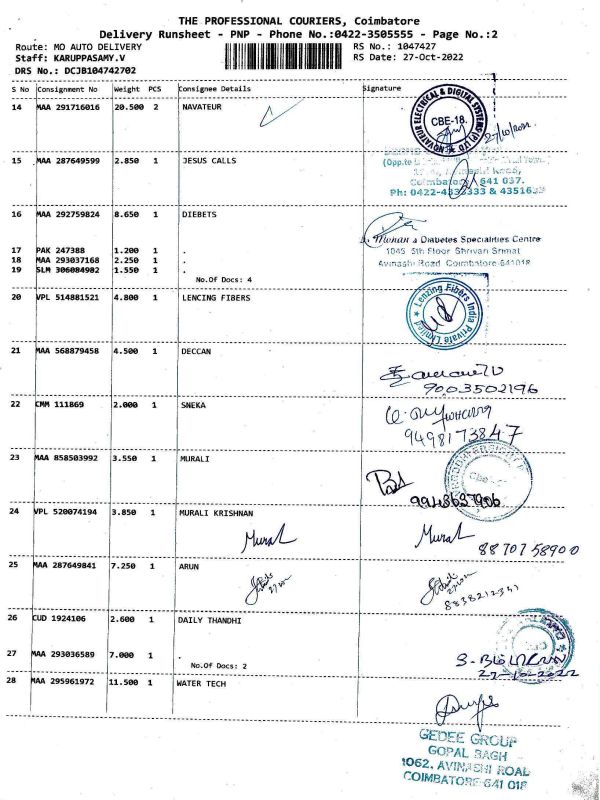 THE PROFESSIONAL COURIERS, Coimbatore
Delivery Runsheet - PNP - Phone No.:0422-3505555 - Page No.:2
Route: MO AUTO DELIVERY RS No.: 1047427
Staff: KARUPPASAMY.V RS Date: 27-Oct-2022
DRS No.: DCJB104742702
S No Consignment No Weight PCS Consignee Details Signature
14 MAA 291716016 20.500 2 NAVATEUR
NOVATEUR ELECTRICAL & DIGITAL SYSTEMS (P) LTD
CBE-18.
27/10/2022
15 MAA 287649599 2.850 1 JESUS CALLS
(Opp.to
Coimbatore 641 037.
Ph: 0422-4333333 &
16 MAA 292759824 8.650 1 DIEBETS
Mohan's Diabetes Specialities Centre
1045 5th Floor Shrivari Srimat
Avinashi Road Coimbatore-641018
17 PAK 247388 1.200 1 .
18 MAA 293037168 2.250 1 .
19 SLM 306084982 1.550 1 .
No.Of Docs: 4
20 VPL 514881521 4.800 1 LENCING FIBERS
Lenzing Fibers India Private Limited
21 MAA 568879458 4.500 1 DECCAN
9003502196
22 CMM 111869 2.000 1 SNEKA
9498173847
23 MAA 858503992 3.550 1 MURALI
24 VPL 520074194 3.850 1 MURALI KRISHNAN
Murali Murali
8870758900
25 MAA 287649841 7.250 1 ARUN
8838212331
26 CUD 1924106 2.600 1 DAILY THANDHI
27 MAA 293036589 7.000 1 .
No.Of Docs: 2
27-10-2022
28 MAA 295961972 11.500 1 WATER TECH
GEDEE GROUP
GOPAL BAGH
1062, AVINASHI ROAD
COIMBATORE-641 018